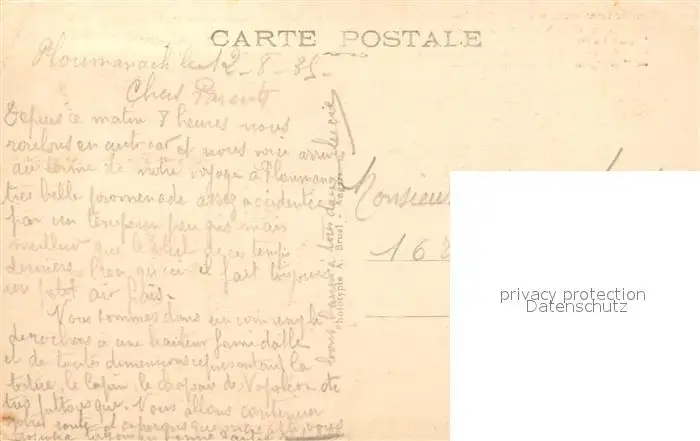 CARTE POSTALE
Ploumanach le 12-8-35-
Chers Parents
Depuis ce matin 8 heures nous
roulons en auto-car et nous voici arrivés
au terme de notre voyage à Ploumanac
très belle promenade assez accidentée
par un temps un peu gris mais
meilleur que le
derniers qu'ici il fait toujours
un petit air frais.
Nous sommes dans un coin rempli
de rochers a une hauteur formidable
et de toutes dimensions representant la
tortue, le lapin, le chapeau de Napoléon etc
très pittoresque. Nous allons continuer
notre route et
bons baisers à tous deux Lucie
Phototypie A. Bruel -
Monsieur
168
privacy protection
Datenschutz